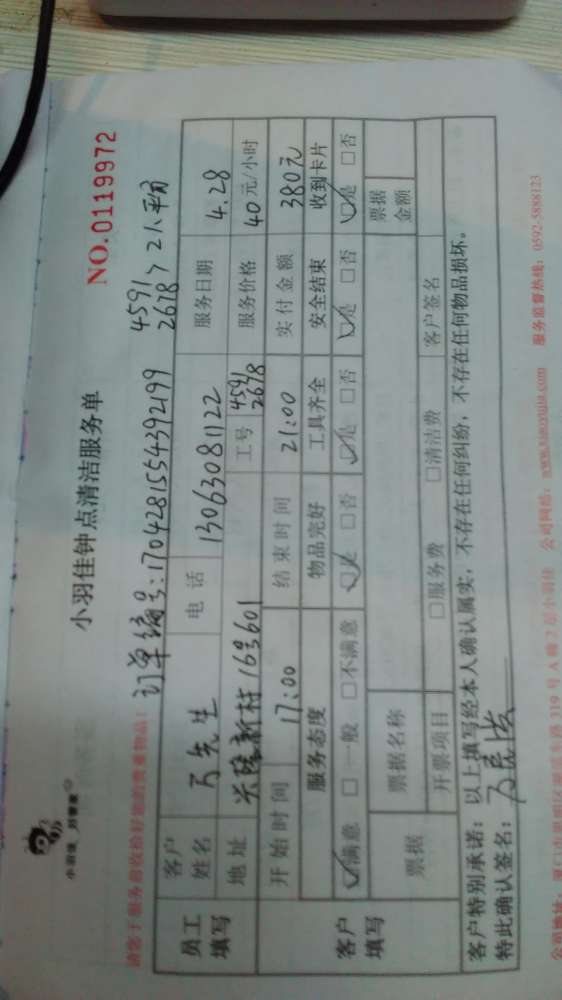 小羽佳 好管家
小羽佳钟点清洁服务单
NO.0119972
请您于服务前收捡好您的贵重物品！
订单编号:1704281554392199
4591
2678 > 2人
员工填写
客户姓名 万先生 电话 13063081122 服务日期 4.28
地址 兴隆新村163601 工号 4591 2678 服务价格 40元/小时
开始时间 17:00 结束时间 21:00 实付金额 380元
客户填写
服务态度 物品完好 工具齐全 安全结束 收到卡片
☑满意 □一般 □不满意 ☑是 □否 ☑是 □否 ☑是 □否 ☑是 □否
票据 票据名称 票据金额
开票项目 □服务费 □清洁费 客户签名
客户特别承诺：以上填写经本人确认属实，不存在任何纠纷，不存在任何物品损坏。
特此确认签名：
公司地址：厦门市 319号A幢2层小羽佳 公司网站：www.xiaoyujia.com 服务监督热线：0592-5888123